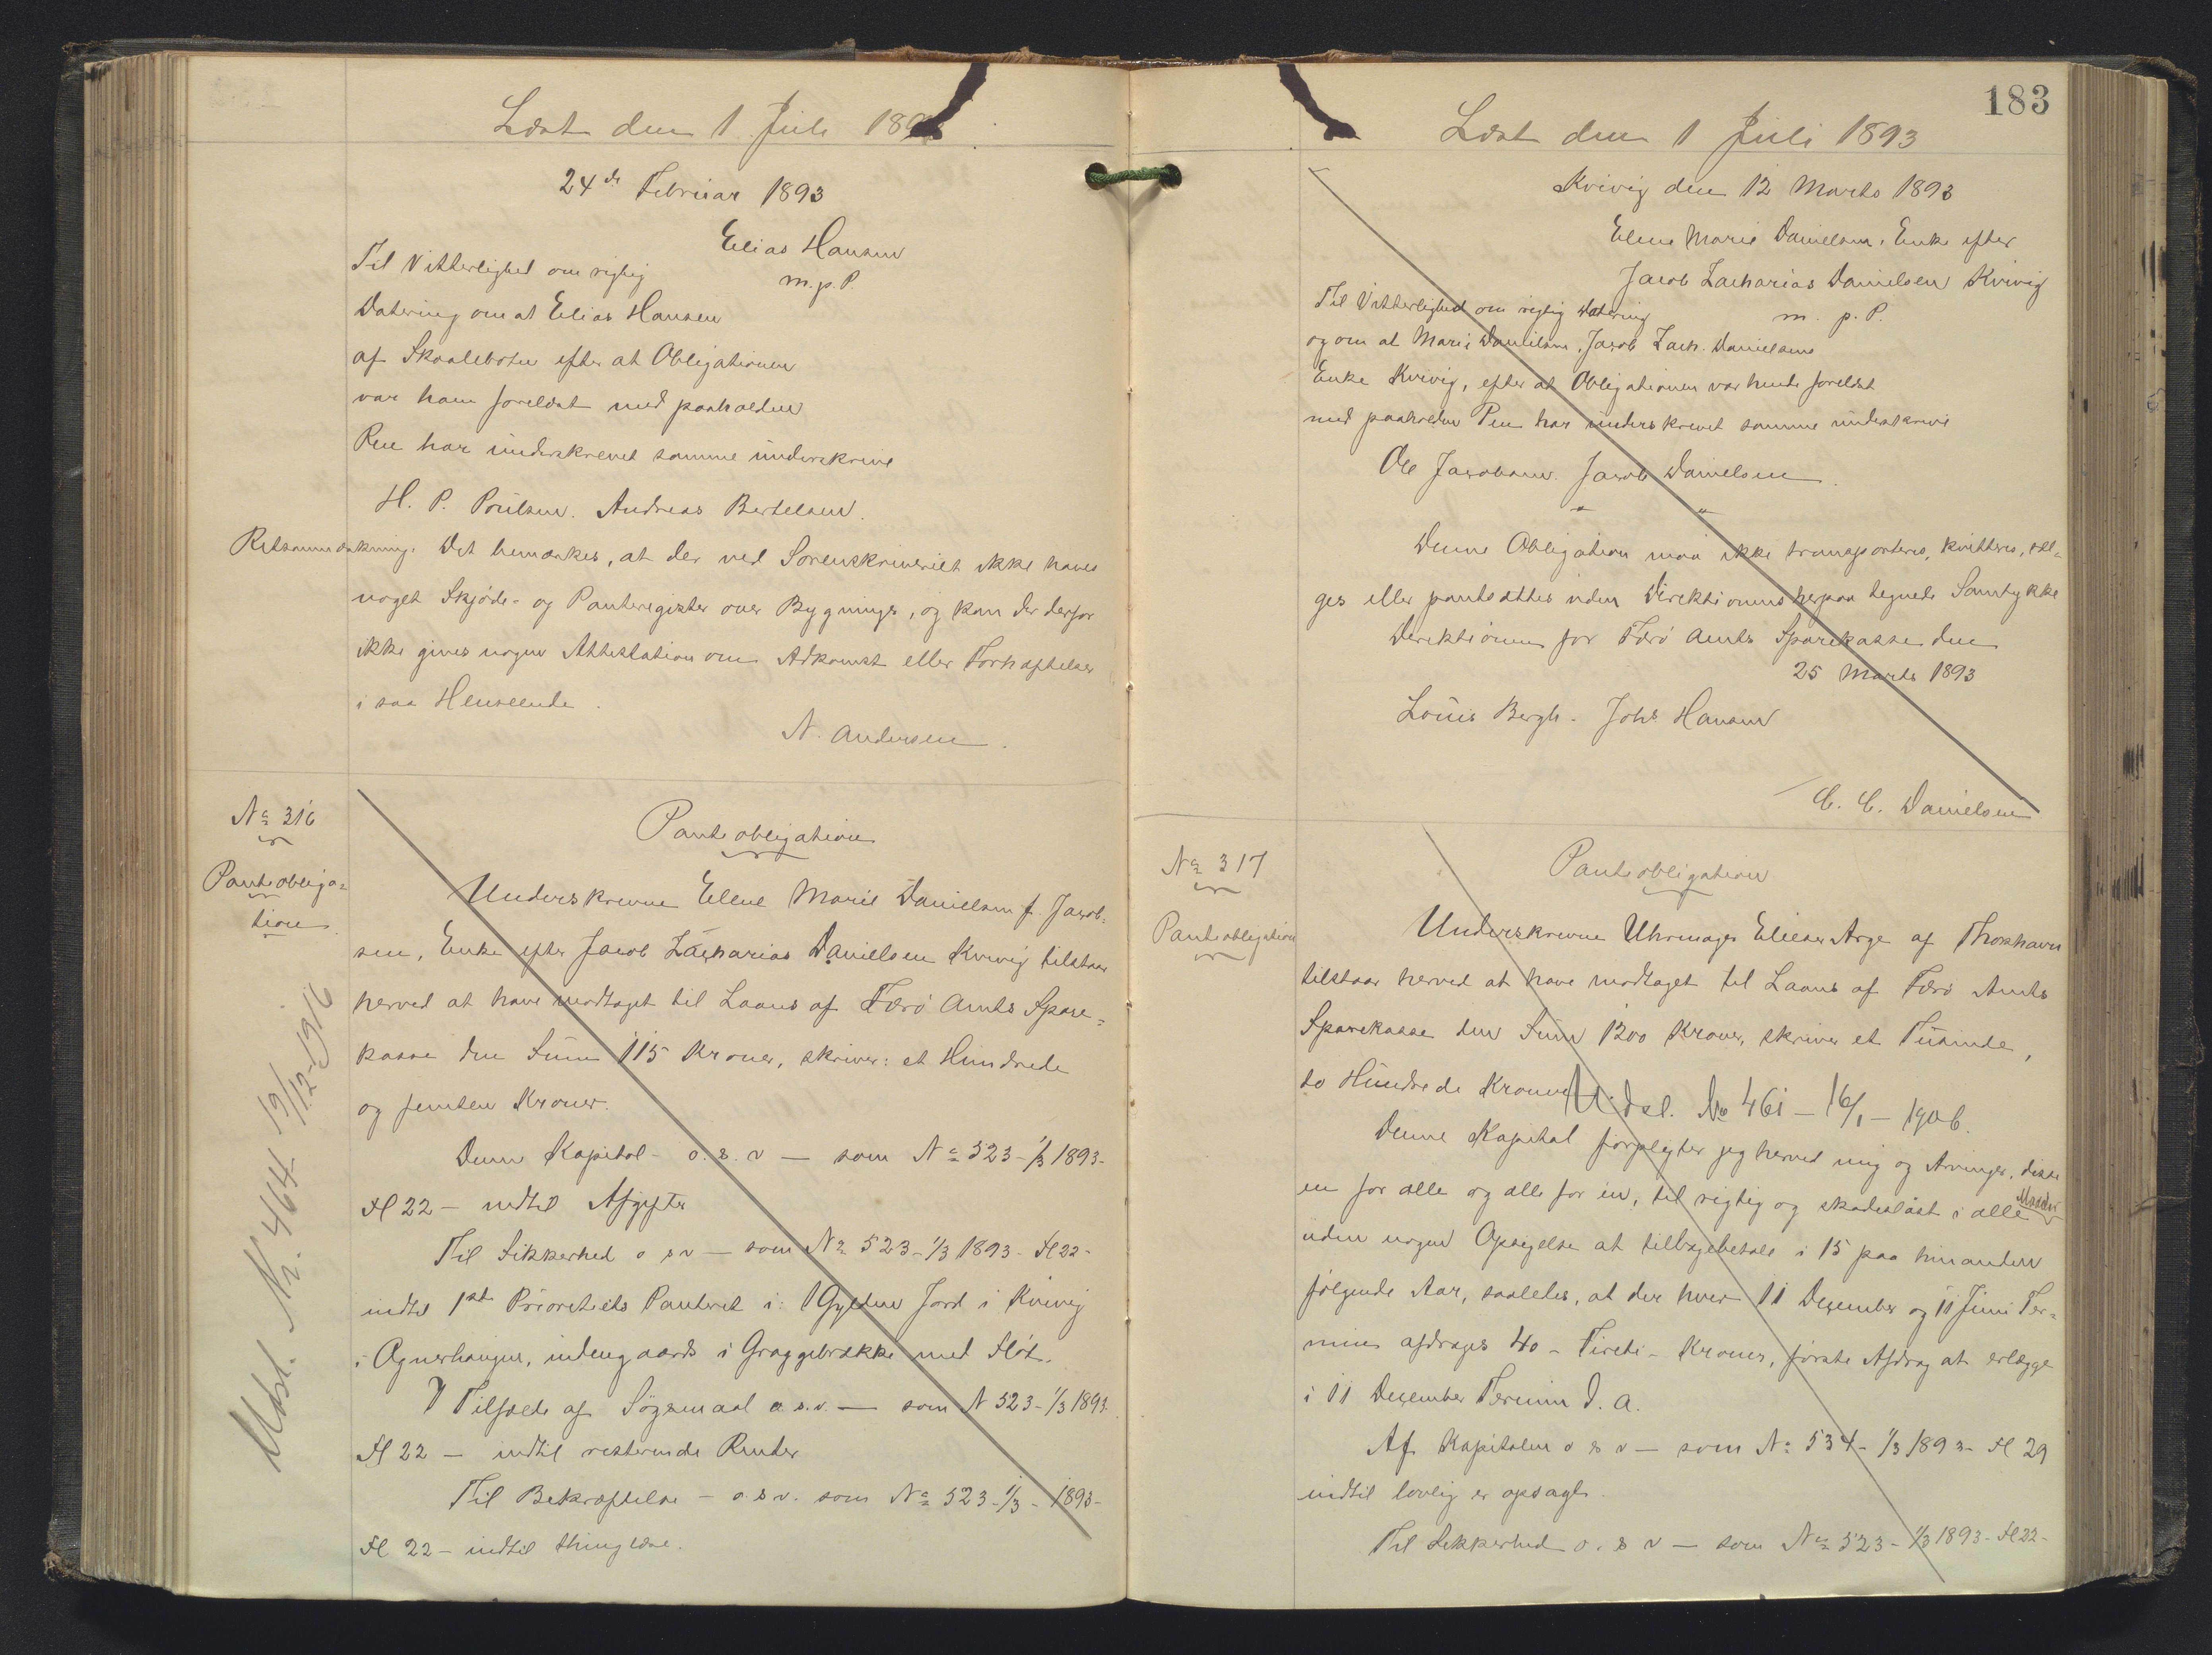 Læst den 1 Juli 189
24de Februar 1893
Elias Hansen
m.p.P.
Til Vitterlighed om rigtig
Datering om at Elias Hansen
af Skaalebotn efter at Obligationen
var ham forelæst med paaholden
Pen har underskrevet samme underskrive
H. P. Poulsen. Andreas Bertelsen.
Retsanmærkning. Det bemærkes, at der ved Sorenskriveriet ikke haves
noget Skjøde- og Panteregister over Bygninger, og kan der derfor
ikke gives nogen Attestation om Adkomst eller Forhæftelser
i saa Henseende.
N. Andersen.
No 316
Panteobliga=
tion
Udsl. Nr. 464 19/12-1916
Panteobligation
Underskrevne Elene Marie Danielsen f. Jacob-
sen, Enke efter Jacob Zacharias Danielsen Kvivig tilstaar
herved at have modtaget til Laans af Færø Amts Spare=
kasse den Sum 115 Kroner, skriver: et Hundrede
og femten Kroner.
Denne Kapital - o.s.v — som No 523-1/3 1893-
Fl 22 — indtil Afgifter
Til Sikkerhed o s v — som No 523-1/3 1893- Fl 22-
indtil 1ste Prioritets Panteret i: 1 Gylden Jord i Kvivig
i Agnerhaugen, indengaards i Graggebrekke med Fløt.
I Tilfælde af Søgsmaal o.s.v. — som N 523-1/3 1893
Fl 22 — indtil resterende Renter
Til Bekræftelse - o.s.v. som No 523-1/3- 1893-
Fl 22 - indtil thinglæse.
183
Læst den 1 Juli 1893
Kvivig den 12 Marts 1893
Elene Marie Danielsen, Enke efter
Jacob Zacharias Danielsen Kvivig
m. p. P.
Til Vitterlighed om rigtig Datering
og om at Marie Danielsen, Jacob Zach. Danielsens
Enke Kvivig, efter at Obligationen var hende forelæst
med paaholden Pen har underskrevet samme underskrive
Ole Jacobsen. Jacob Danielsen.
Denne Obligation maa ikke transporteres, kvitteres, sæl=
ges eller pantsættes uden Direktionens herpaa tegnede Samtykke
Direktionen for Færø Amts Sparekasse den
25 Marts 1893
Louis Bergh. Johs Hansen
C. C. Danielsen
No 317
Panteobligation
Panteobligation
Underskrevne Uhrmager Elieser Arge af Thorshavn
tilstaar herved at have modtaget til Laans af Færø Amts
Sparekasse den Sum 1200 Kroner, skriver et Tusinde,
to Hundrede Kroner
Udsl. No 461 - 16/1 - 1906.
Denne Kapital forpligter jeg herved mig og Arvinger, disse
en for alle og alle for en, til rigtig og skadesløst i alle Maader
uden nogen Opsigelse at tilbagebetale i 15 paa hinanden
følgende Aar, saaledes, at der hver 11 Dezember og 11 Juni Ter=
min afdrages 40 - Fireti - Kroner, første Afdrag at erlægge
i 11 Dezember Termin d. A.
Af Kapitalen o s v — som No 534- 1/3 1893- Fl 29
indtil lovlig er opsagt.
Til Sikkerhed o. s v — som No 523- 1/3 1893- Fl 22-